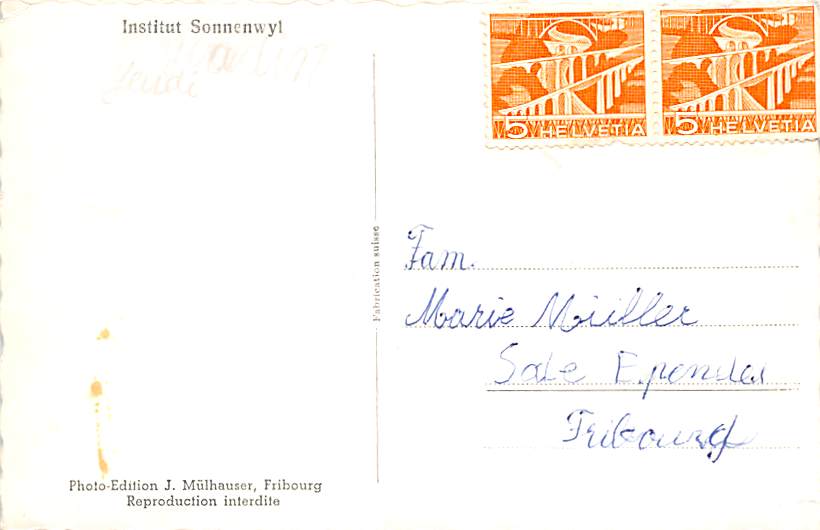 Institut Sonnenwyl
5 HELVETIA 5 HELVETIA
Fabrication suisse
Fam.
Marie Müller
Fribourg
Photo-Edition J. Mülhauser, Fribourg
Reproduction interdite